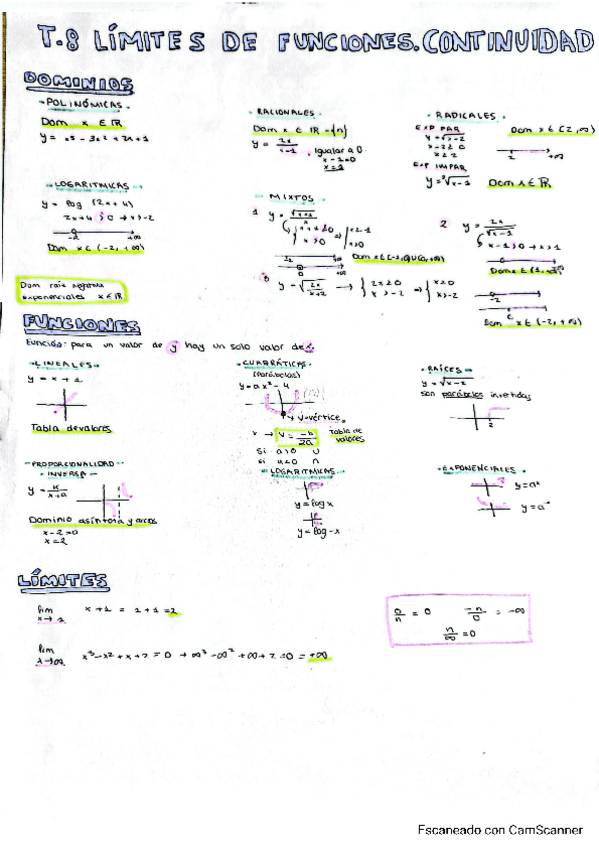 T.8 LÍMITES DE FUNCIONES. CONTINUIDAD
DOMINIOS
- POLINÓMICAS -
Dom x ∈ ℝ
- RACIONALES -
Dom x ∈ ℝ - {n}
y = 2x/x-1
Igualar a 0
x-1=0
x=1
- RADICALES -
EXP PAR
y = √x-2
x-2≥0
x≥2
Dom x ∈ [2, ∞)
2 +∞
EXP IMPAR
Dom x ∈ ℝ
- LOGARITMICAS -
y = log (2x+4)
-2 +∞
Dom x ∈ (-2, +∞)
- MIXTOS -
1
2
y = 2x/√x-1
x-1>0 → x>1
3 y = √2x/x+2
Dom x ∈ (-2, +∞)
Dom raíz negativa
exponenciales x ∈ ℝ
FUNCIONES
Función: para un valor de y hay un solo valor de
- LINEALES -
y = x + 1
Tabla de valores
- CUADRÁTICAS -
(Parábolas)
y = ax² - 4
v=vértice
x → V = -b/2a
Tabla de valores
si a>0 ∪
si a<0 ∩
- RAÍCES -
y = √x-2
son parábolas invertidas
2
- PROPORCIONALIDAD
INVERSA -
y = K/x+a
Dominio asíntota y arcos
x-2=0
x=2
- LOGARITMICAS -
y = log x
y = log -x
- EXPONENCIALES -
y=aˣ
y=a⁻ˣ
LÍMITES
lim x→1 x+1 = 1+1 = 2
0/n = 0 -n/0 = -∞
n/∞ = 0
lim x→∞ x³-x²+x+7=0 → ∞³-∞²+∞+7=0 = +∞
Escaneado con CamScanner